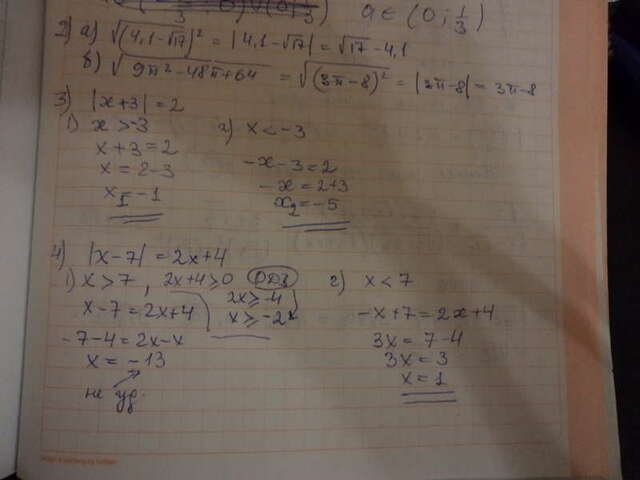 a ∈ (0; 1/3)
2) а) √(4,1-√17)² = |4,1-√17| = √17 - 4,1
б) √9π²-48π+64 = √(3π-8)² = |3π-8| = 3π-8
3) |x+3| = 2
1) x > -3
x+3 = 2
x = 2-3
x₁ = -1
2) x < -3
-x-3 = 2
-x = 2+3
x₂ = -5
4) |x-7| = 2x+4
1) x > 7, 2x+4 ≥ 0 ОДЗ
2x ≥ -4
x ≥ -2
x-7 = 2x+4
-7-4 = 2x-x
x = -13
не уд.
2) x < 7
-x+7 = 2x+4
3x = 7-4
3x = 3
x = 1